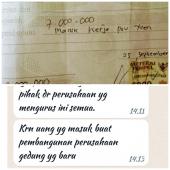 7.000.000
Masuk kerja
25 September
pihak dr perusahaan yg
mengurus ini semua.
14.11
Krn uang yg masuk buat
pembangunan perusahaan
gedung yg baru
14.13